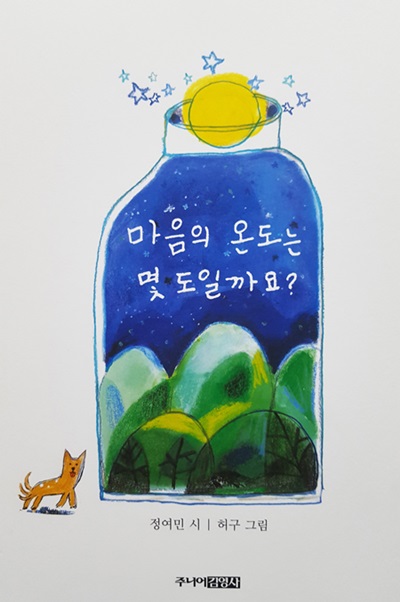 마음의 온도는
몇 도일까요?
정여민 시 | 허구 그림
주니어김영사